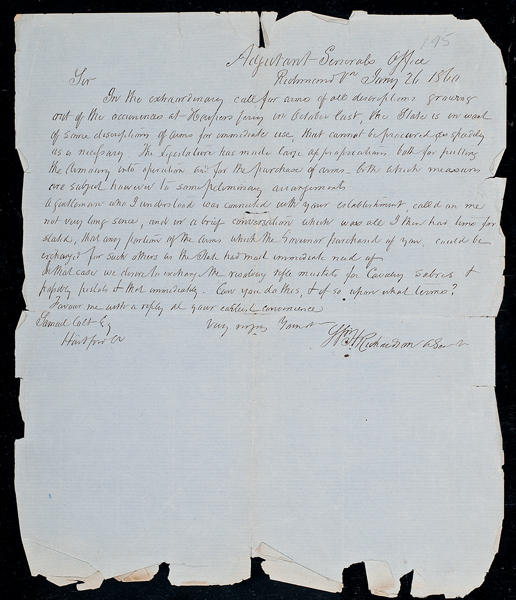 195
Adjutant Generals Office
Richmond Va Jany 26 1860
Sir
In the extraordinary call for arms of all descriptions growing
out of the occurrences at Harpers ferry in October last, the State is in want
of some descriptions of arms for immediate use, that cannot be procured as speedily
as is necessary. The Legislature has made large appropriations both for putting
the Armoury into operation and for the purchase of arms both which measures
are subject however to some preliminary arrangements
A gentleman who I understood was connected with your establishment, called on me
not very long since, and in a brief conversation which was all I then had time for
stated, that any portion of the arms which the Governor purchased of you, could be
exchanged for such others as the State had most immediate need of
In that case we desire to exchange the rifle muskets for Cavalry Sabres &
pistols & that immediately. Can you do this, & if so upon what terms?
Favour me with a reply at your earliest convenience
Samuel Colt Esq Very Yours &
Hartford Ct Wm H Richardson